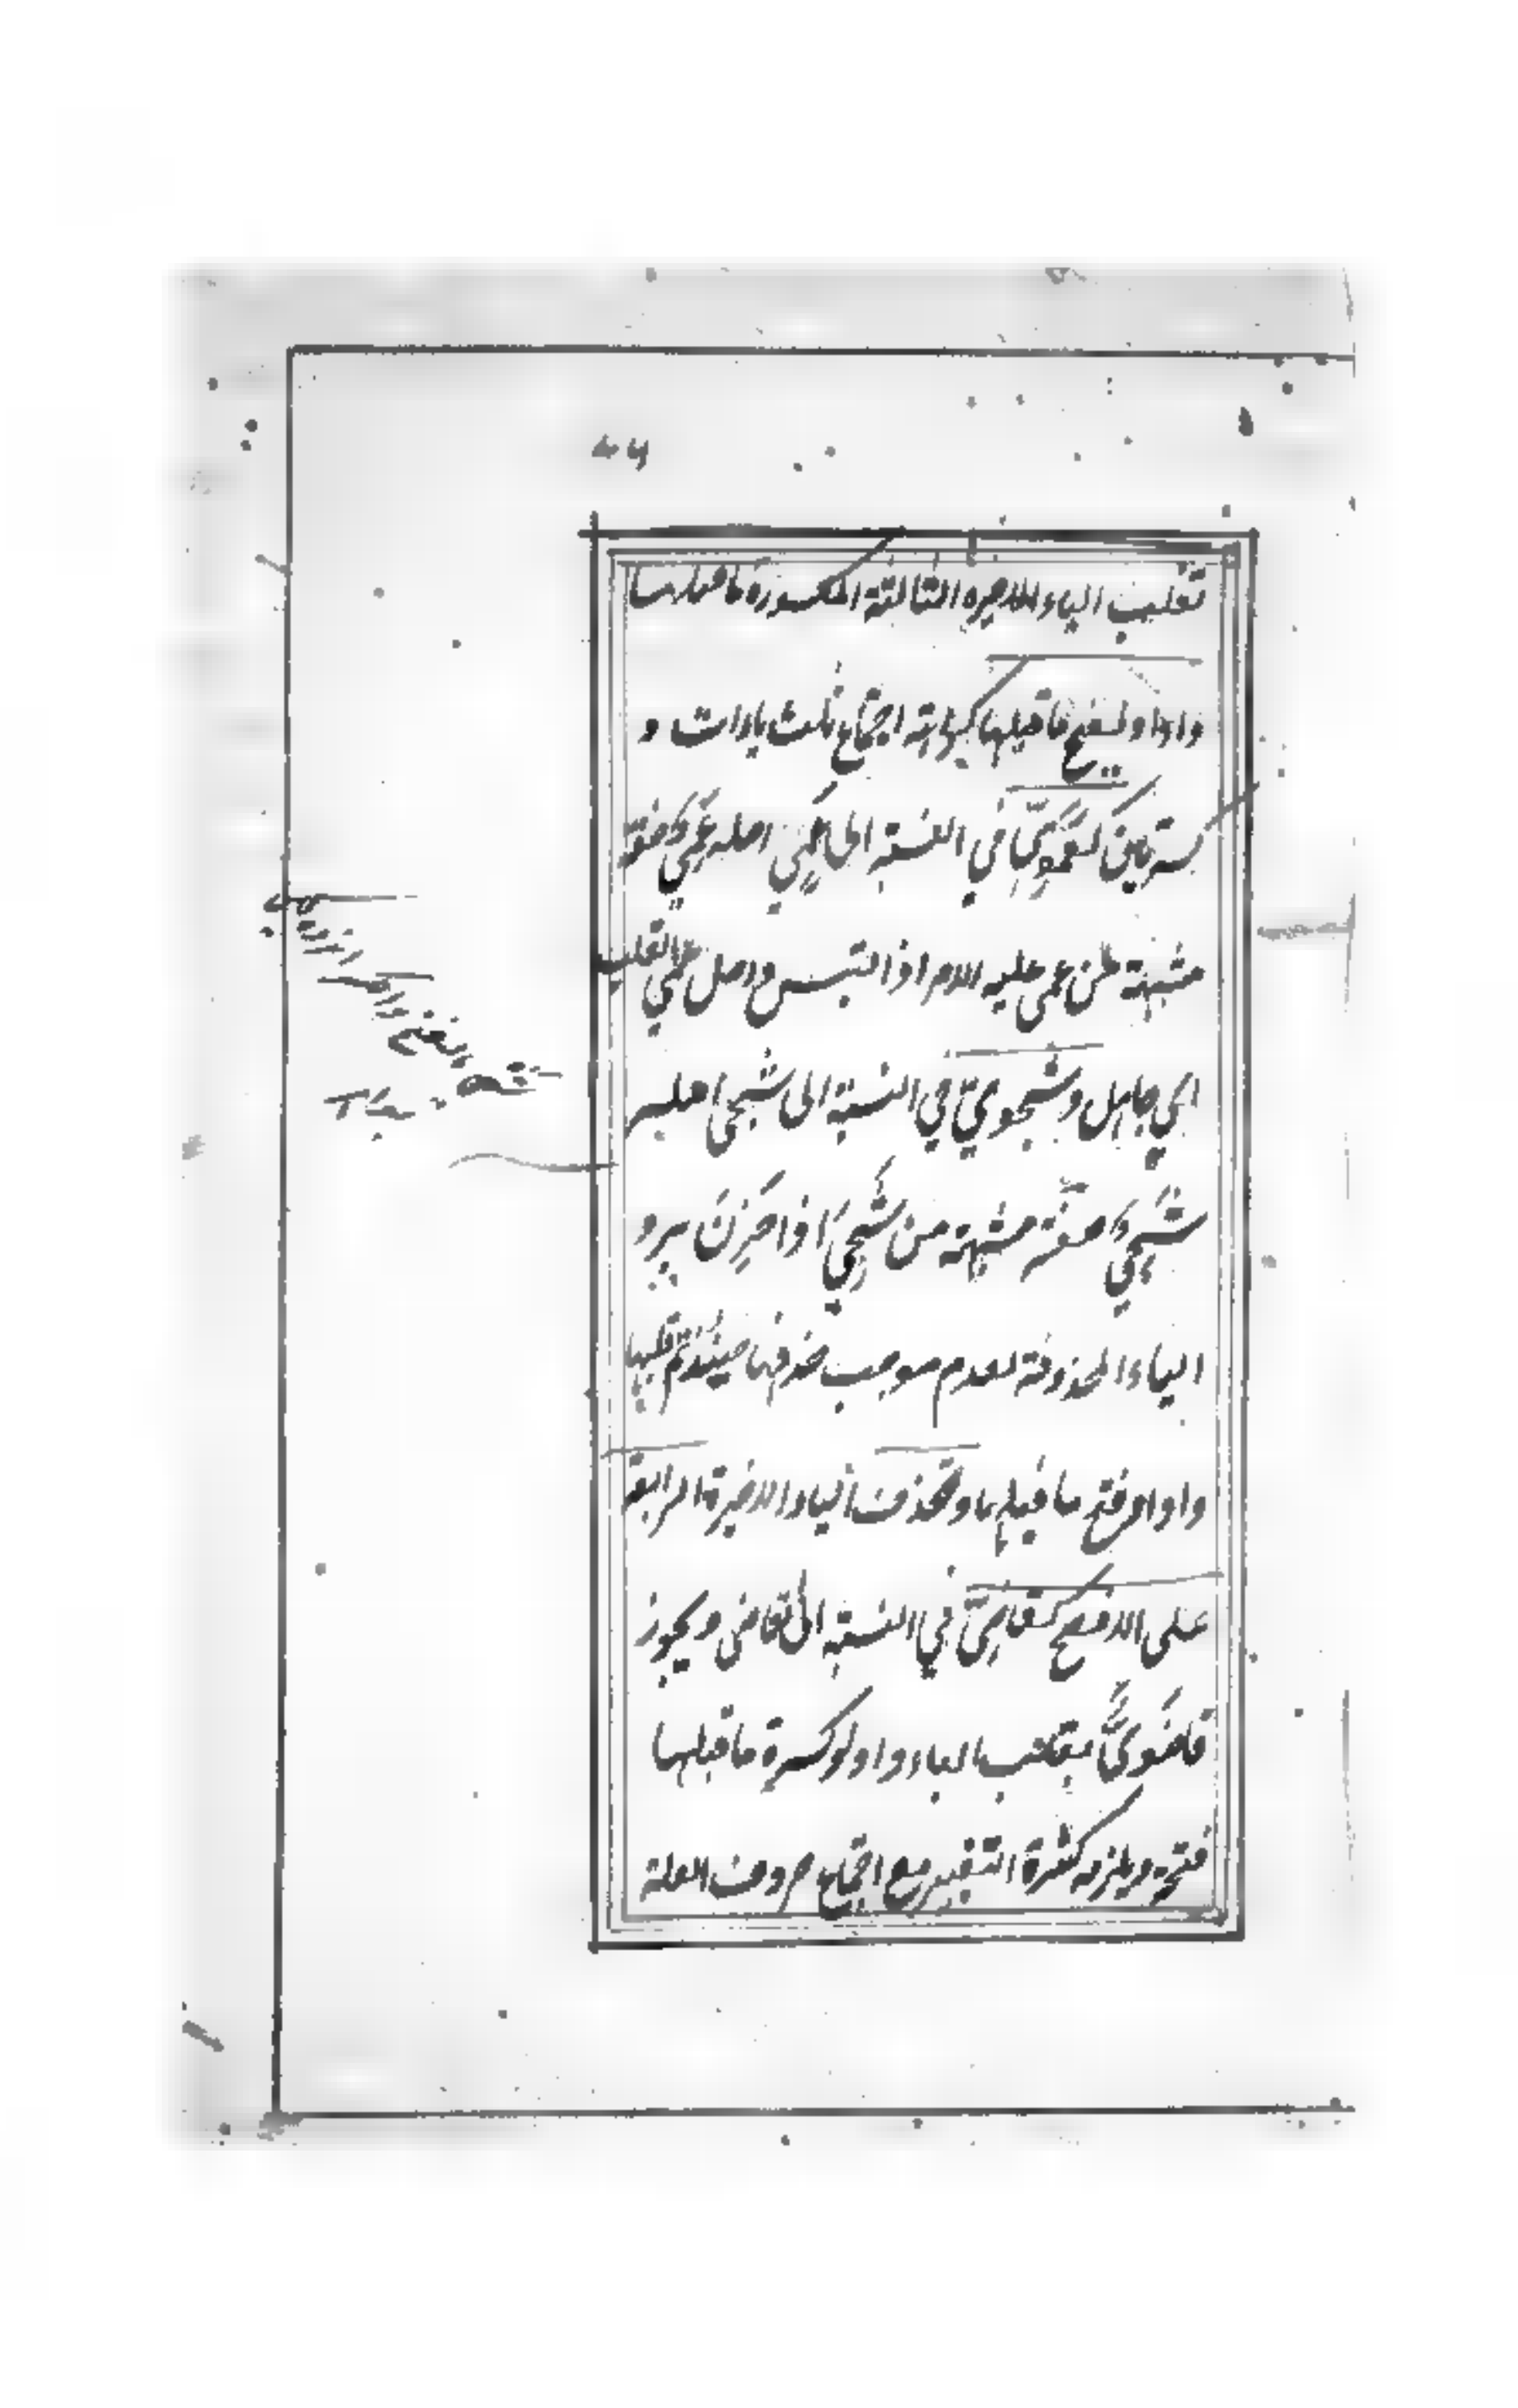 تقلب الياء الاخيرة الثالثة المكسورة ما قبلها
واوا و يفتح ما قبلها كراهة اجتماع ثلث ياءات و
كسرتين كعَمَوِيٍّ في النسبة الى عَمِي اصله عَمِيٌ صفة
مشبهة من عمى عليه الامر اذا التبس ورجل عمي القلب
اي جاهل وشجويّ في النسبة الى شجى اصله
شَجِيٌ صفة مشبهة من شَجِيَ اذا حَزِنَ يرد
الياء المحذوفة لعدم موجب حذفها حينئذ ثم قلبها
واوا وفتح ما قبلها وتحذف الياء الاخيرة الرابعة
على الافصح كقاضِيّ في النسبة الى قاضى ويجوز
قاضَوِيٌّ بقلب الياء واوا وكسرة ما قبلها
فتحة ويلزمه كثرة التغيير مع اجتماع حروف العلة